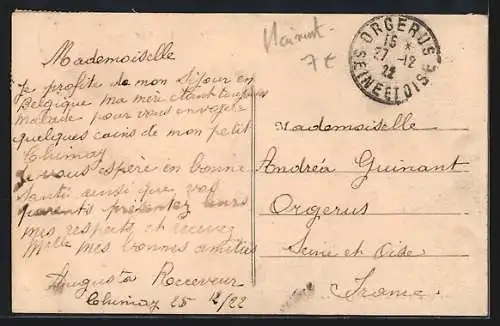 Hainaut.
7 €
ORGERUS
15 *
27 -12
22
SEINE ET OISE
Mademoiselle
Je profite de mon séjour en
Belgique ma mère étant toujours
malade pour vous envoyer
quelques coins de mon petit
Chimay
Je vous espère en bonne
santé ainsi que vos
parents présentez leurs
mes respects et recevez
Melle mes bonnes amitiés
Augusta Receveur
Chimay 25 12/22
Mademoiselle
Andréa Guinant
Orgerus
Seine et Oise
France